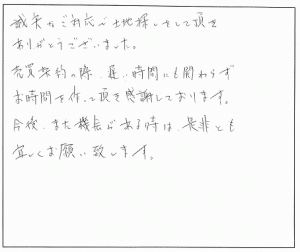 誠実なご対応で土地探しをして頂き
ありがとうございました。
売買契約の際、遅い時間にも関わらず
お時間を作って頂き感謝しております。
今後、また機会がある時は、是非とも
宜しくお願い致します。